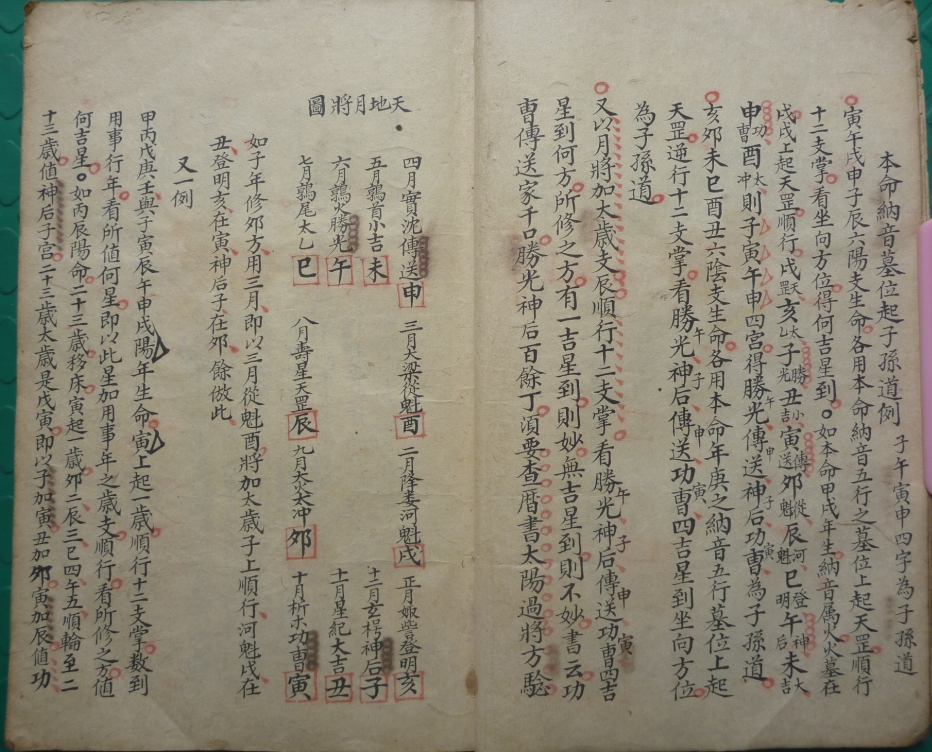 本命納音墓位起子孫道例 子午寅申四字為子孫道
寅午戌申子辰六陽支生命各用本命納音五行之墓位上起天罡順行
十二支掌看坐向方位得何吉星到如本命甲戌年生納音属火火墓在
戌戌上起天罡順行戌天罡亥太乙子勝光丑小吉寅傳送卯從魁辰河魁巳登明午神后未大吉
申功曹酉太冲則子寅午申四宮得勝光午傳送申神后子功曹寅為子孫道
亥卯未巳酉丑六陰支生命各用本命年庚之納音五行墓位上起
天罡逆行十二支掌看勝光午神后子傳送申功曹寅四吉星到坐向方位
為子孫道
又以月將加太歲支辰順行十二支掌看勝光午神后子傳送申功曹寅四吉
星到何方所修之方有一吉星到則妙無吉星到則不妙書云功
曹傳送家千口勝光神后百餘丁須要查曆書太陽過將方驗
天地月將圖
四月實沈傳送申 三月大梁從魁酉 二月降婁河魁戌 正月娵訾登明亥
五月鶉首小吉未 十二月玄枵神后子
六月鶉火勝光午 十一月星紀大吉丑
七月鶉尾太乙巳 八月壽星天罡辰 九月大火太冲卯 十月析木功曹寅
如子年修卯方用三月即以三月從魁酉將加太歲子上順行河魁戌在
丑登明亥在寅神后子在卯餘倣此
又一例
甲丙戊庚壬與子寅辰午申戌陽年生命寅上起一歲順行十二支掌数到
用事行年看所值何星即以此星加用事年之歲支順行看所修之方值
何吉星如丙辰陽命二十三歲移床寅起一歲卯二辰三巳四午五順輪至二
十三歲值神后子宮二十三歲太歲是戊寅即以子加寅丑加卯寅加辰值功